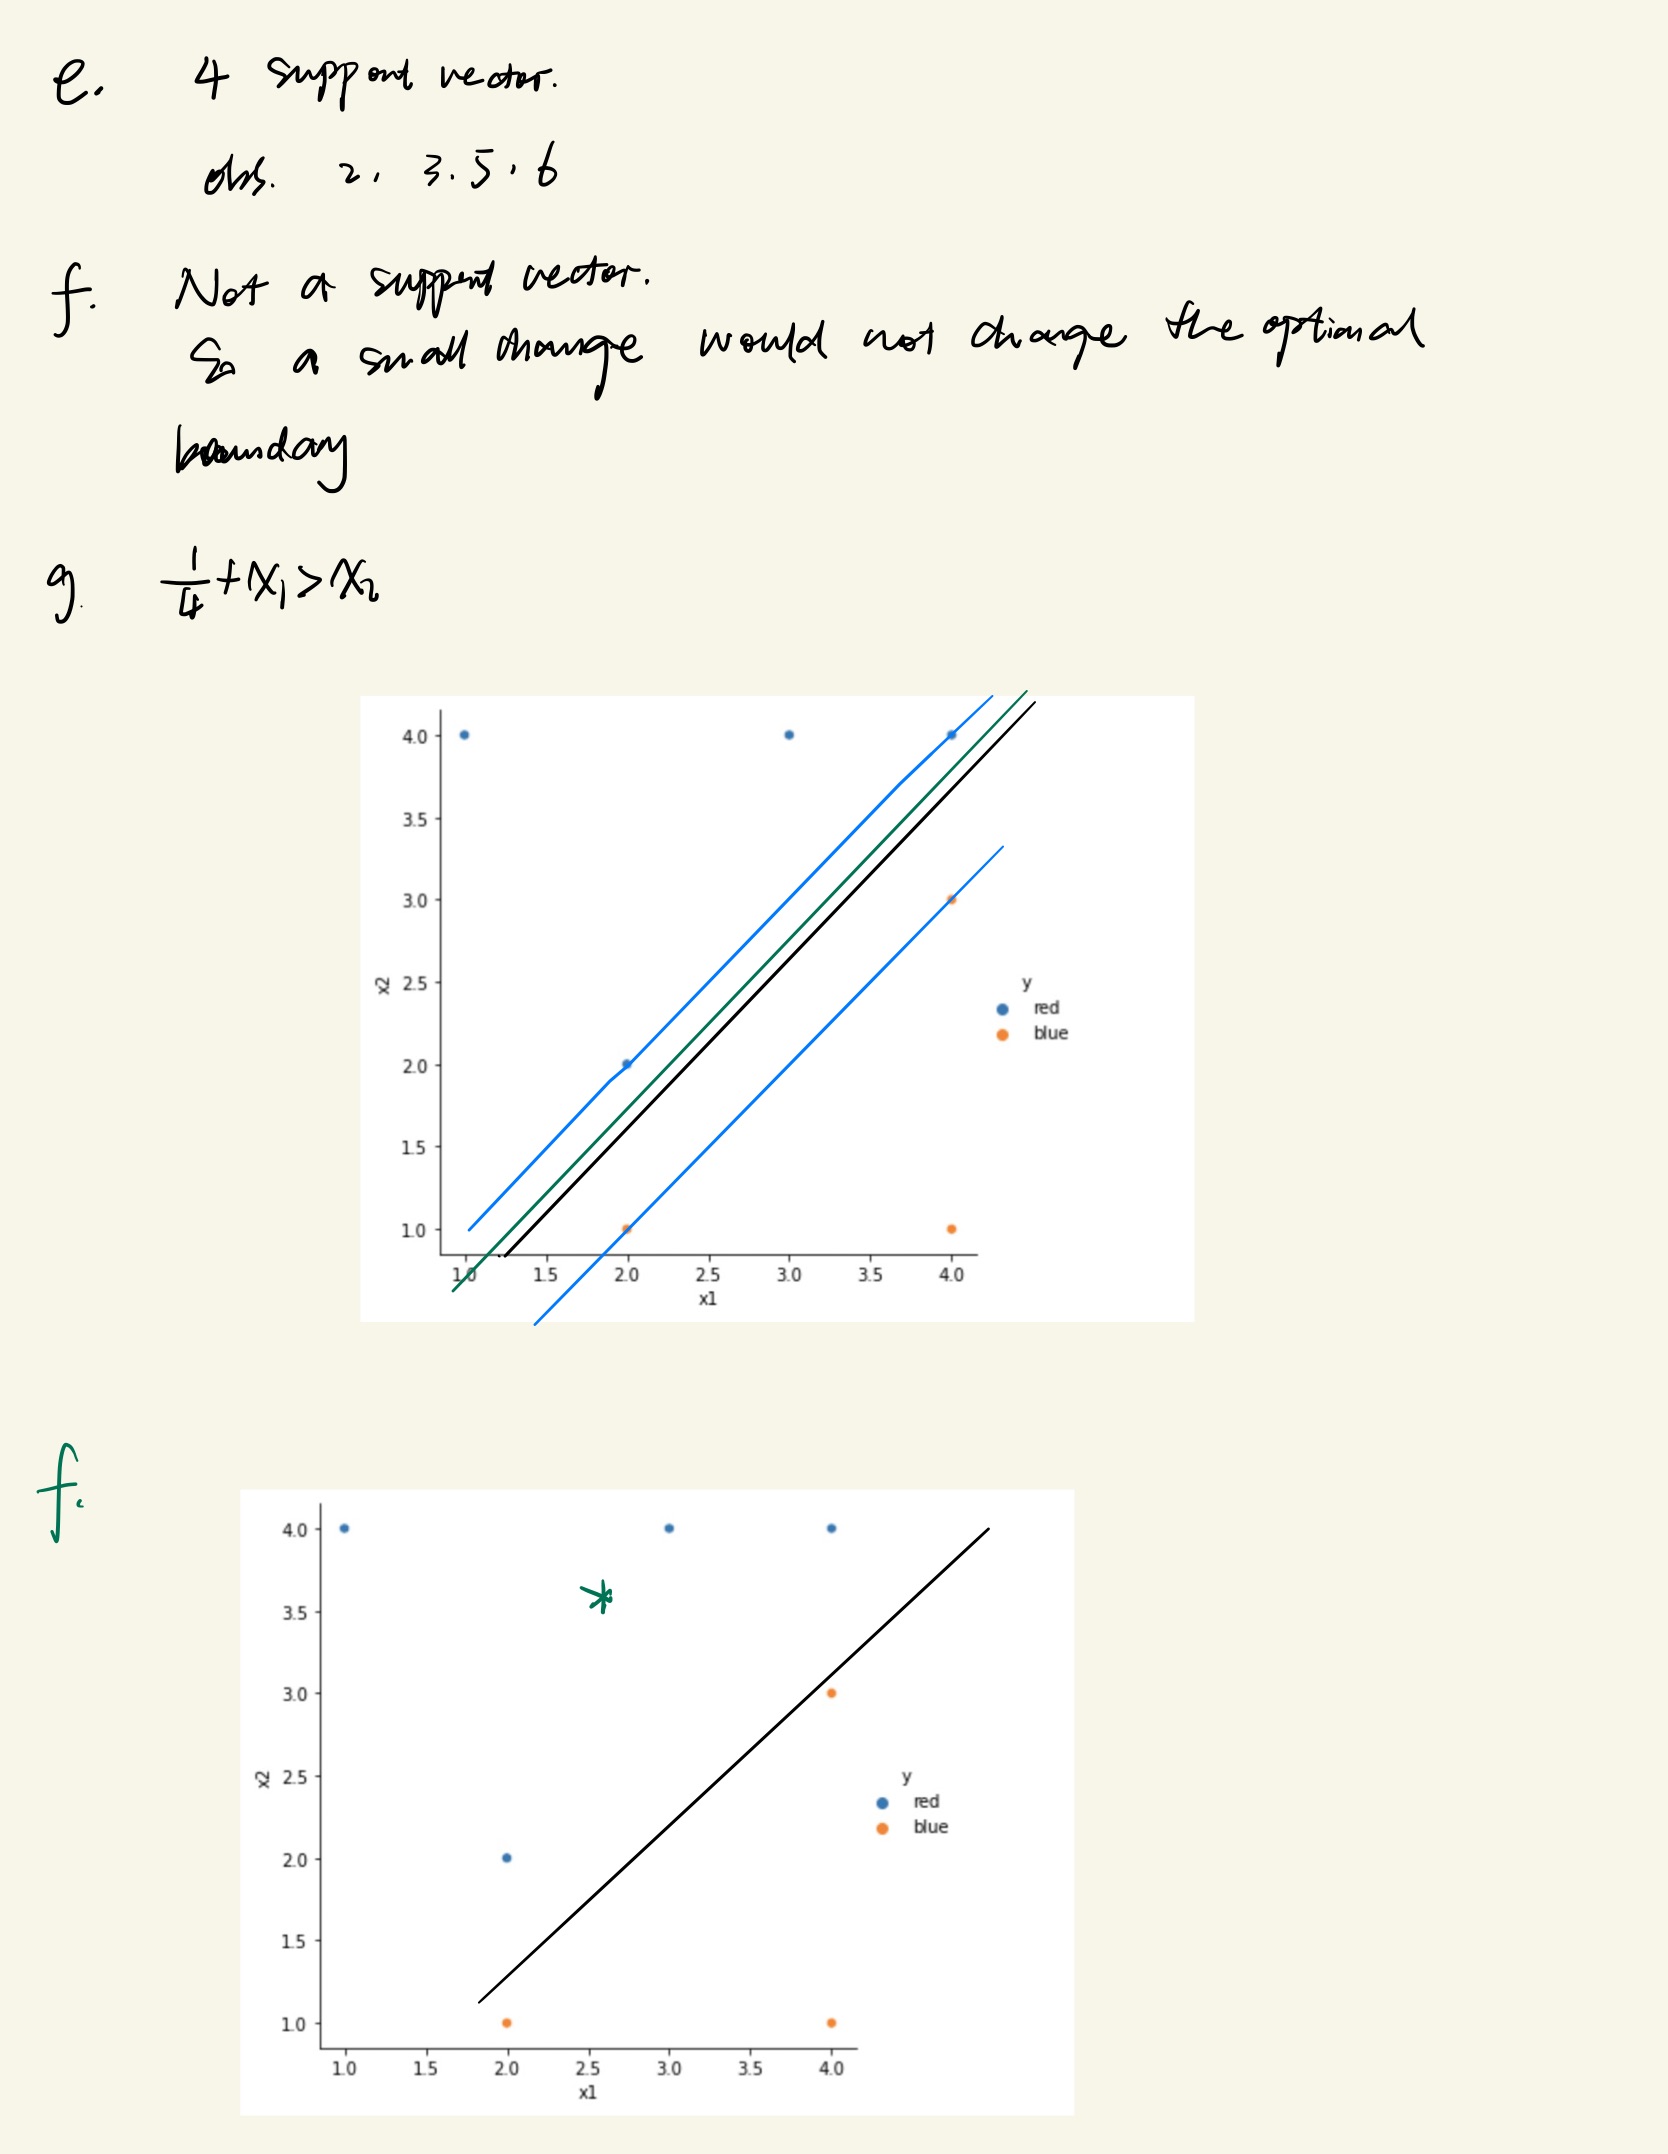 e. 4 support vector.
obs. 2, 3. 5, 6
f. Not a support vector.
So a small change would not change the optional
boundary
g. 1/4 + x₁ > x₂
4.0
3.5
3.0
2.5
2.0
1.5
1.0
x2
1.0 1.5 2.0 2.5 3.0 3.5 4.0
x1
y
red
blue
f.
4.0
3.5
3.0
2.5
2.0
1.5
1.0
x2
1.0 1.5 2.0 2.5 3.0 3.5 4.0
x1
y
red
blue